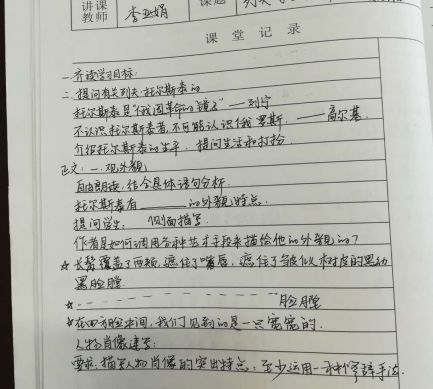 讲课教师 李亚娟 课题 列夫
课堂记录
一.齐读学习目标.
二.提问有关列夫·托尔斯泰的
托尔斯泰是"俄国革命的镜子"——列宁
不认识托尔斯泰者,不可能认识俄罗斯.——高尔基.
介绍托尔斯泰的生平.提问生活和打扮
正文:一.观外貌
自由朗读,结合具体语句分析.
托尔斯泰有______的外貌特点.
提问学生: 侧面描写.
作者是如何调用各种艺术手段来描绘他的外貌的?
☆ 长髯覆盖了两颊,遮住了嘴唇,遮住了皱似树皮的黑
黑脸膛
☆ ------------脸膛
☆ 在四方脸中间,我们见到的是一只宽宽的.
人物肖像速写:
要求:描写人物肖像的突出特点,至少运用一种修辞手法.